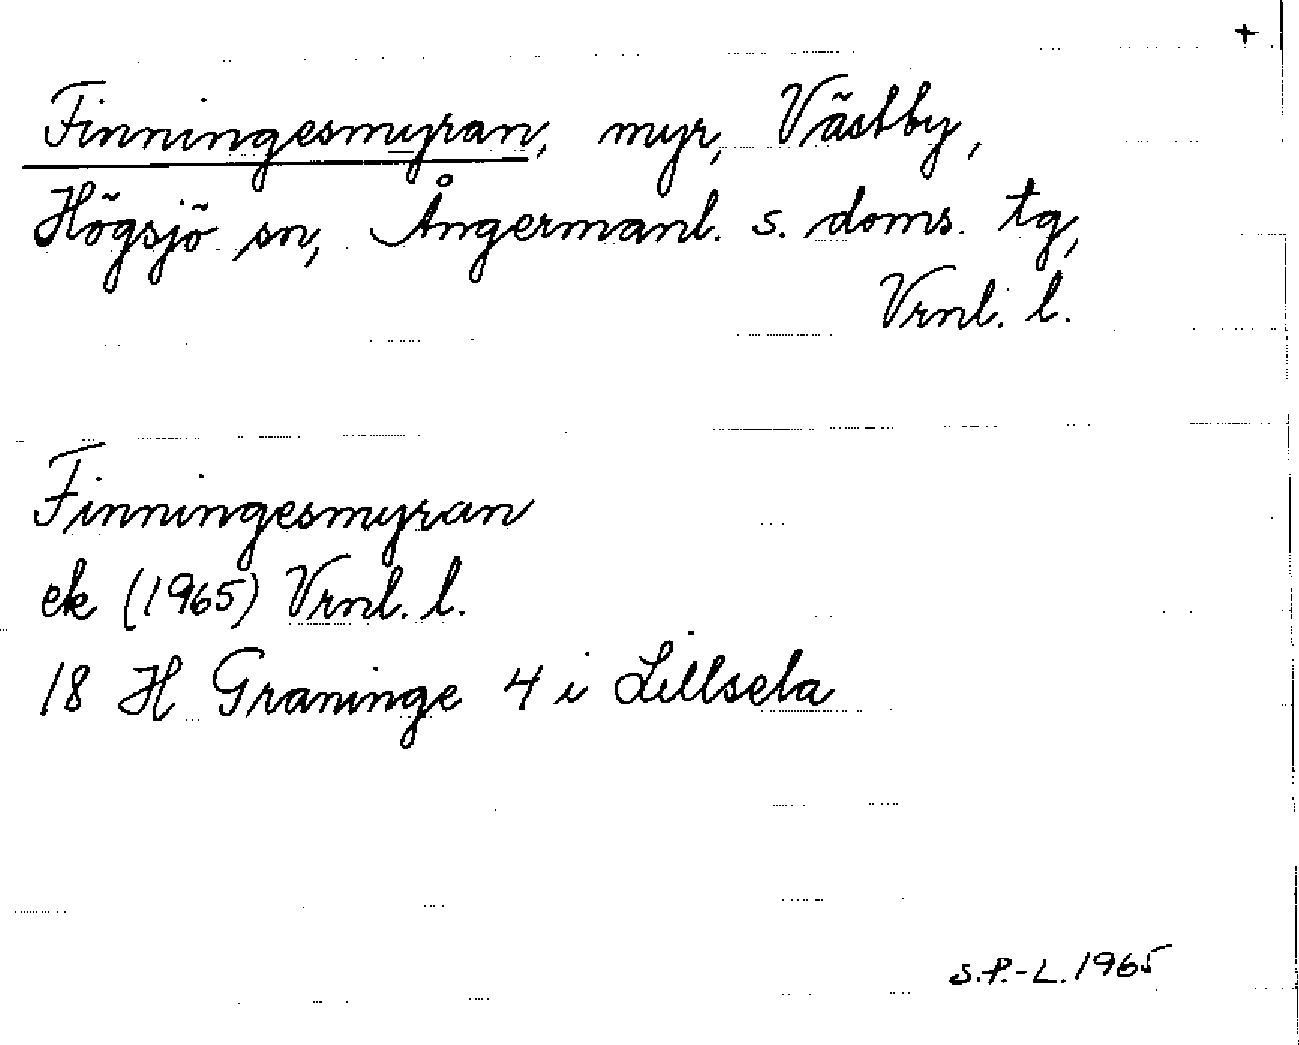 +
Finningesmyran, myr, Västby,
Högsjö sn, Ångermanl. s. doms. tg,
Vrnl. l.
Finningesmyran
ek (1965) Vrnl. l.
18 H Graninge 4 i Lillsela
S.P.-L. 1965